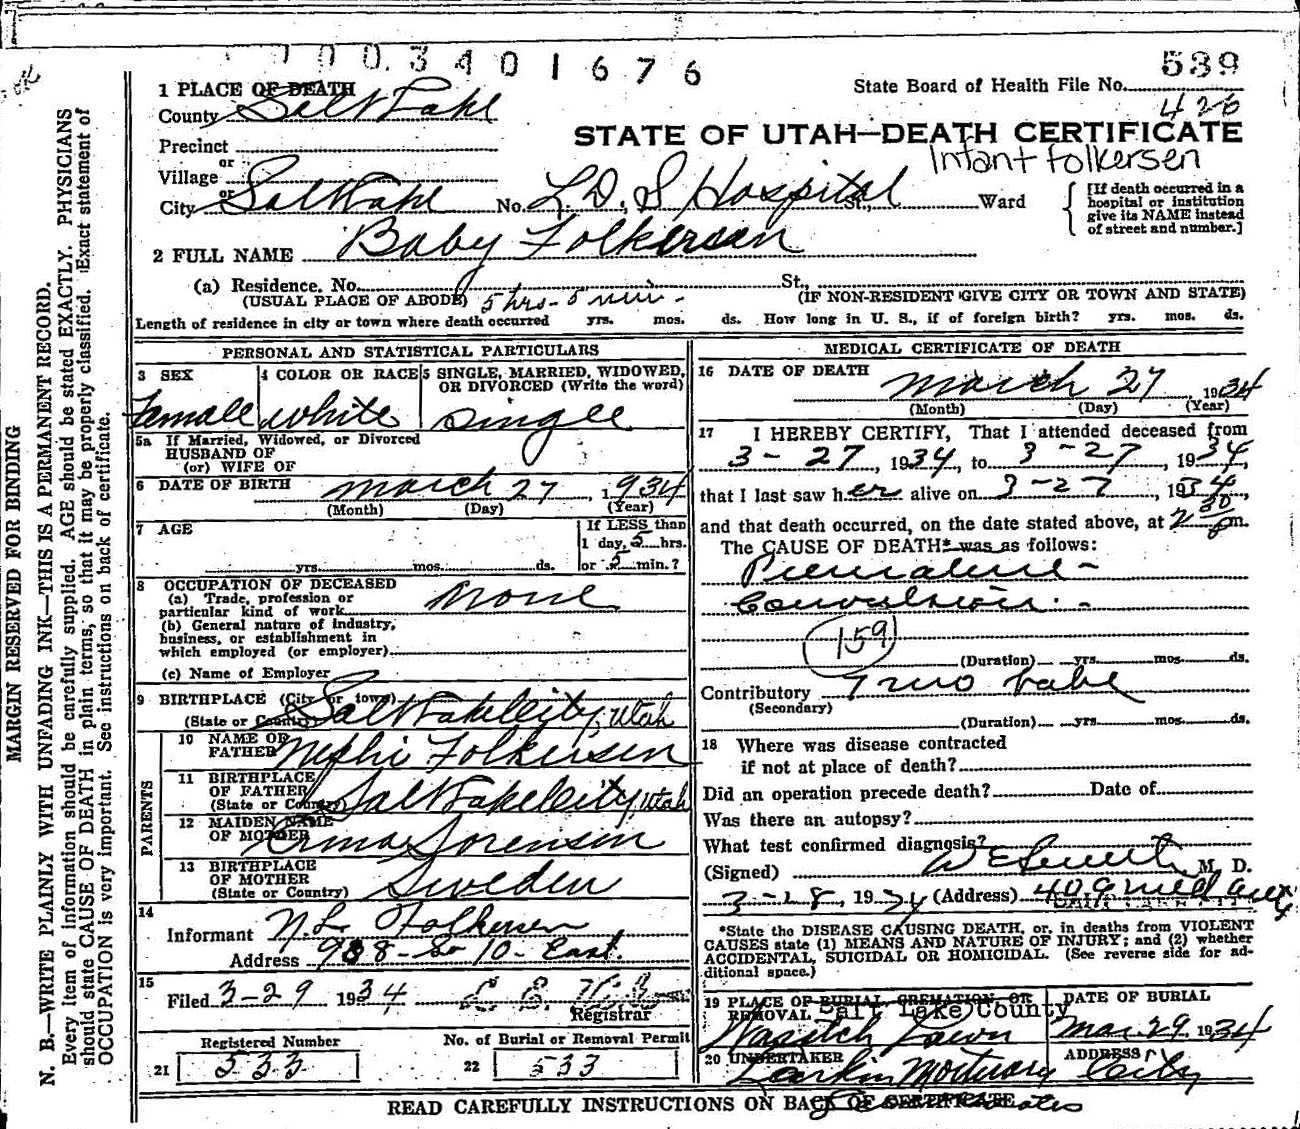 1003401676
State Board of Health File No. 539
426
1 PLACE OF DEATH
County Salt Lake
STATE OF UTAH—DEATH CERTIFICATE
Precinct
Infant Folkersen
or
Village
or
City Salt Lake No. L.D.S Hospital St., Ward
[If death occurred in a hospital or institution give its NAME instead of street and number.]
2 FULL NAME Baby Folkersen
(a) Residence. No. St.,
(USUAL PLACE OF ABODE) (IF NON-RESIDENT GIVE CITY OR TOWN AND STATE)
5 hrs - 5 min -
Length of residence in city or town where death occurred yrs. mos. ds. How long in U. S., if of foreign birth? yrs. mos. ds.
PERSONAL AND STATISTICAL PARTICULARS
3 SEX
Female
4 COLOR OR RACE
White
5 SINGLE, MARRIED, WIDOWED,
OR DIVORCED (Write the word)
Single
5a If Married, Widowed, or Divorced
HUSBAND OF
(or) WIFE OF
6 DATE OF BIRTH March 27, 1934
(Month) (Day) (Year)
7 AGE
yrs. mos. ds.
If LESS than
1 day, 5 hrs.
or 5 min.?
8 OCCUPATION OF DECEASED
(a) Trade, profession or
particular kind of work None
(b) General nature of industry,
business, or establishment in
which employed (or employer)
(c) Name of Employer
9 BIRTHPLACE (City or town)
(State or Country) Salt Lake City, Utah
PARENTS
10 NAME OF
FATHER Nephi Folkersen
11 BIRTHPLACE
OF FATHER
(State or Country) Salt Lake City, Utah
12 MAIDEN NAME
OF MOTHER Erma Sorensen
13 BIRTHPLACE
OF MOTHER
(State or Country) Sweden
14
Informant N.L. Folkersen
Address 988 - So 10 - East.
15
Filed 3-29 1934
Registrar
Registered Number
21 533
No. of Burial or Removal Permit
22 533
MEDICAL CERTIFICATE OF DEATH
16 DATE OF DEATH
March 27 1934
(Month) (Day) (Year)
17 I HEREBY CERTIFY, That I attended deceased from
3-27, 1934, to 3-27, 1934,
that I last saw her alive on 3-27, 1934,
and that death occurred, on the date stated above, at 2 30 p m.
The CAUSE OF DEATH* was as follows:
Premature -
Convulsions. -
159
(Duration) yrs. mos. ds.
Contributory
(Secondary)
(Duration) yrs. mos. ds.
18 Where was disease contracted
if not at place of death?
Did an operation precede death? Date of
Was there an autopsy?
What test confirmed diagnosis?
(Signed) M. D.
3-28, 1934 (Address) 409
*State the DISEASE CAUSING DEATH, or, in deaths from VIOLENT
CAUSES state (1) MEANS AND NATURE OF INJURY; and (2) whether
ACCIDENTAL, SUICIDAL OR HOMICIDAL. (See reverse side for ad-
ditional space.)
19 PLACE OF BURIAL, CREMATION, OR
REMOVAL Salt Lake County
Wasatch Lawn
DATE OF BURIAL
Mar. 29 1934
20 UNDERTAKER
Larkin Mortuary
ADDRESS
City
READ CAREFULLY INSTRUCTIONS ON BACK OF CERTIFICATE
MARGIN RESERVED FOR BINDING
N. B.—WRITE PLAINLY WITH UNFADING INK—THIS IS A PERMANENT RECORD.
Every item of information should be carefully supplied. AGE should be stated EXACTLY. PHYSICIANS
should state CAUSE OF DEATH in plain terms, so that it may be properly classified. Exact statement of
OCCUPATION is very important. See instructions on back of certificate.